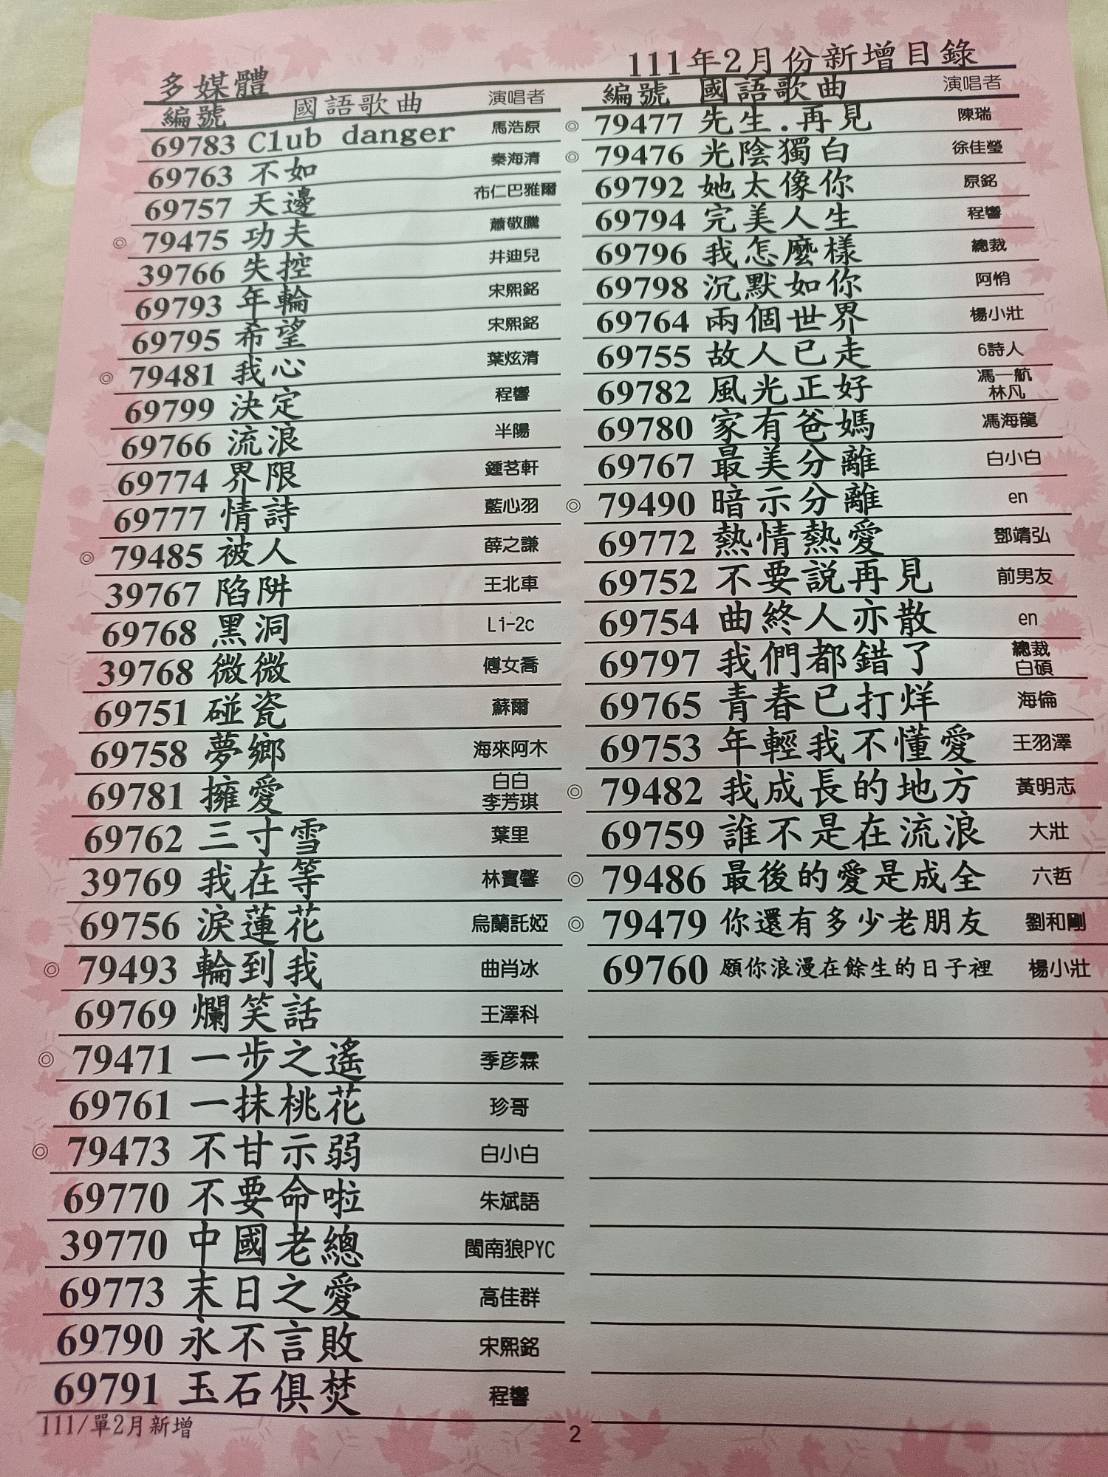 多媒體
111年2月份新增目錄
編號 國語歌曲 演唱者
69783 Club danger 馬浩原
69763 不如 秦海清
69757 天邊 布仁巴雅爾
◎ 79475 功夫 蕭敬騰
39766 失控 井迪兒
69793 年輪 宋熙銘
69795 希望 宋熙銘
◎ 79481 我心 葉炫清
69799 決定 程響
69766 流浪 半陽
69774 界限 鍾茗軒
69777 情詩 藍心羽
◎ 79485 被人 薛之謙
39767 陷阱 王北車
69768 黑洞 Li-2c
39768 微微 傅如喬
69751 碰瓷 蘇爾
69758 夢鄉 海來阿木
69781 擁愛 白白 李芳琪
69762 三寸雪 葉里
39769 我在等 林寶馨
69756 淚蓮花 烏蘭託婭
◎ 79493 輪到我 曲肖冰
69769 爛笑話 王澤科
◎ 79471 一步之遙 季彦霖
69761 一抹桃花 珍哥
◎ 79473 不甘示弱 白小白
69770 不要命啦 朱斌語
39770 中國老總 閩南狼PYC
69773 末日之愛 高佳群
69790 永不言敗 宋熙銘
69791 玉石俱焚 程響
編號 國語歌曲 演唱者
◎ 79477 先生.再見 陳瑞
◎ 79476 光陰獨白 徐佳瑩
69792 她太像你 原銘
69794 完美人生 程響
69796 我怎麼樣 總裁
69798 沉默如你 阿悄
69764 兩個世界 楊小壯
69755 故人已走 6詩人
69782 風光正好 馮一航 林凡
69780 家有爸媽 馮海龍
69767 最美分離 白小白
◎ 79490 暗示分離 en
69772 熱情熱愛 鄧靖弘
69752 不要說再見 前男友
69754 曲終人亦散 en
69797 我們都錯了 總裁 白碩
69765 青春已打烊 海倫
69753 年輕我不懂愛 王羽澤
◎ 79482 我成長的地方 黃明志
69759 誰不是在流浪 大壯
◎ 79486 最後的愛是成全 六哲
◎ 79479 你還有多少老朋友 劉和剛
69760 願你浪漫在餘生的日子裡 楊小壯
111/單2月新增
2